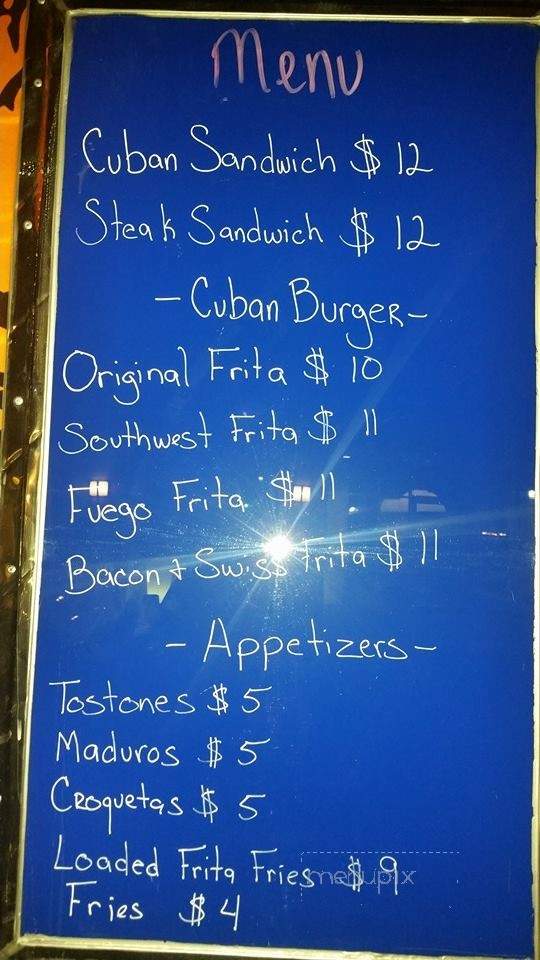 Menu
Cuban Sandwich $ 12
Steak Sandwich $ 12
- Cuban Burger -
Original Frita $ 10
Southwest Frita $ 11
Fuego Frita $ 11
Bacon + Swiss Frita $ 11
- Appetizers -
Tostones $ 5
Maduros $ 5
Croquetas $ 5
Loaded Frita Fries $ 9
menupix
Fries $ 4